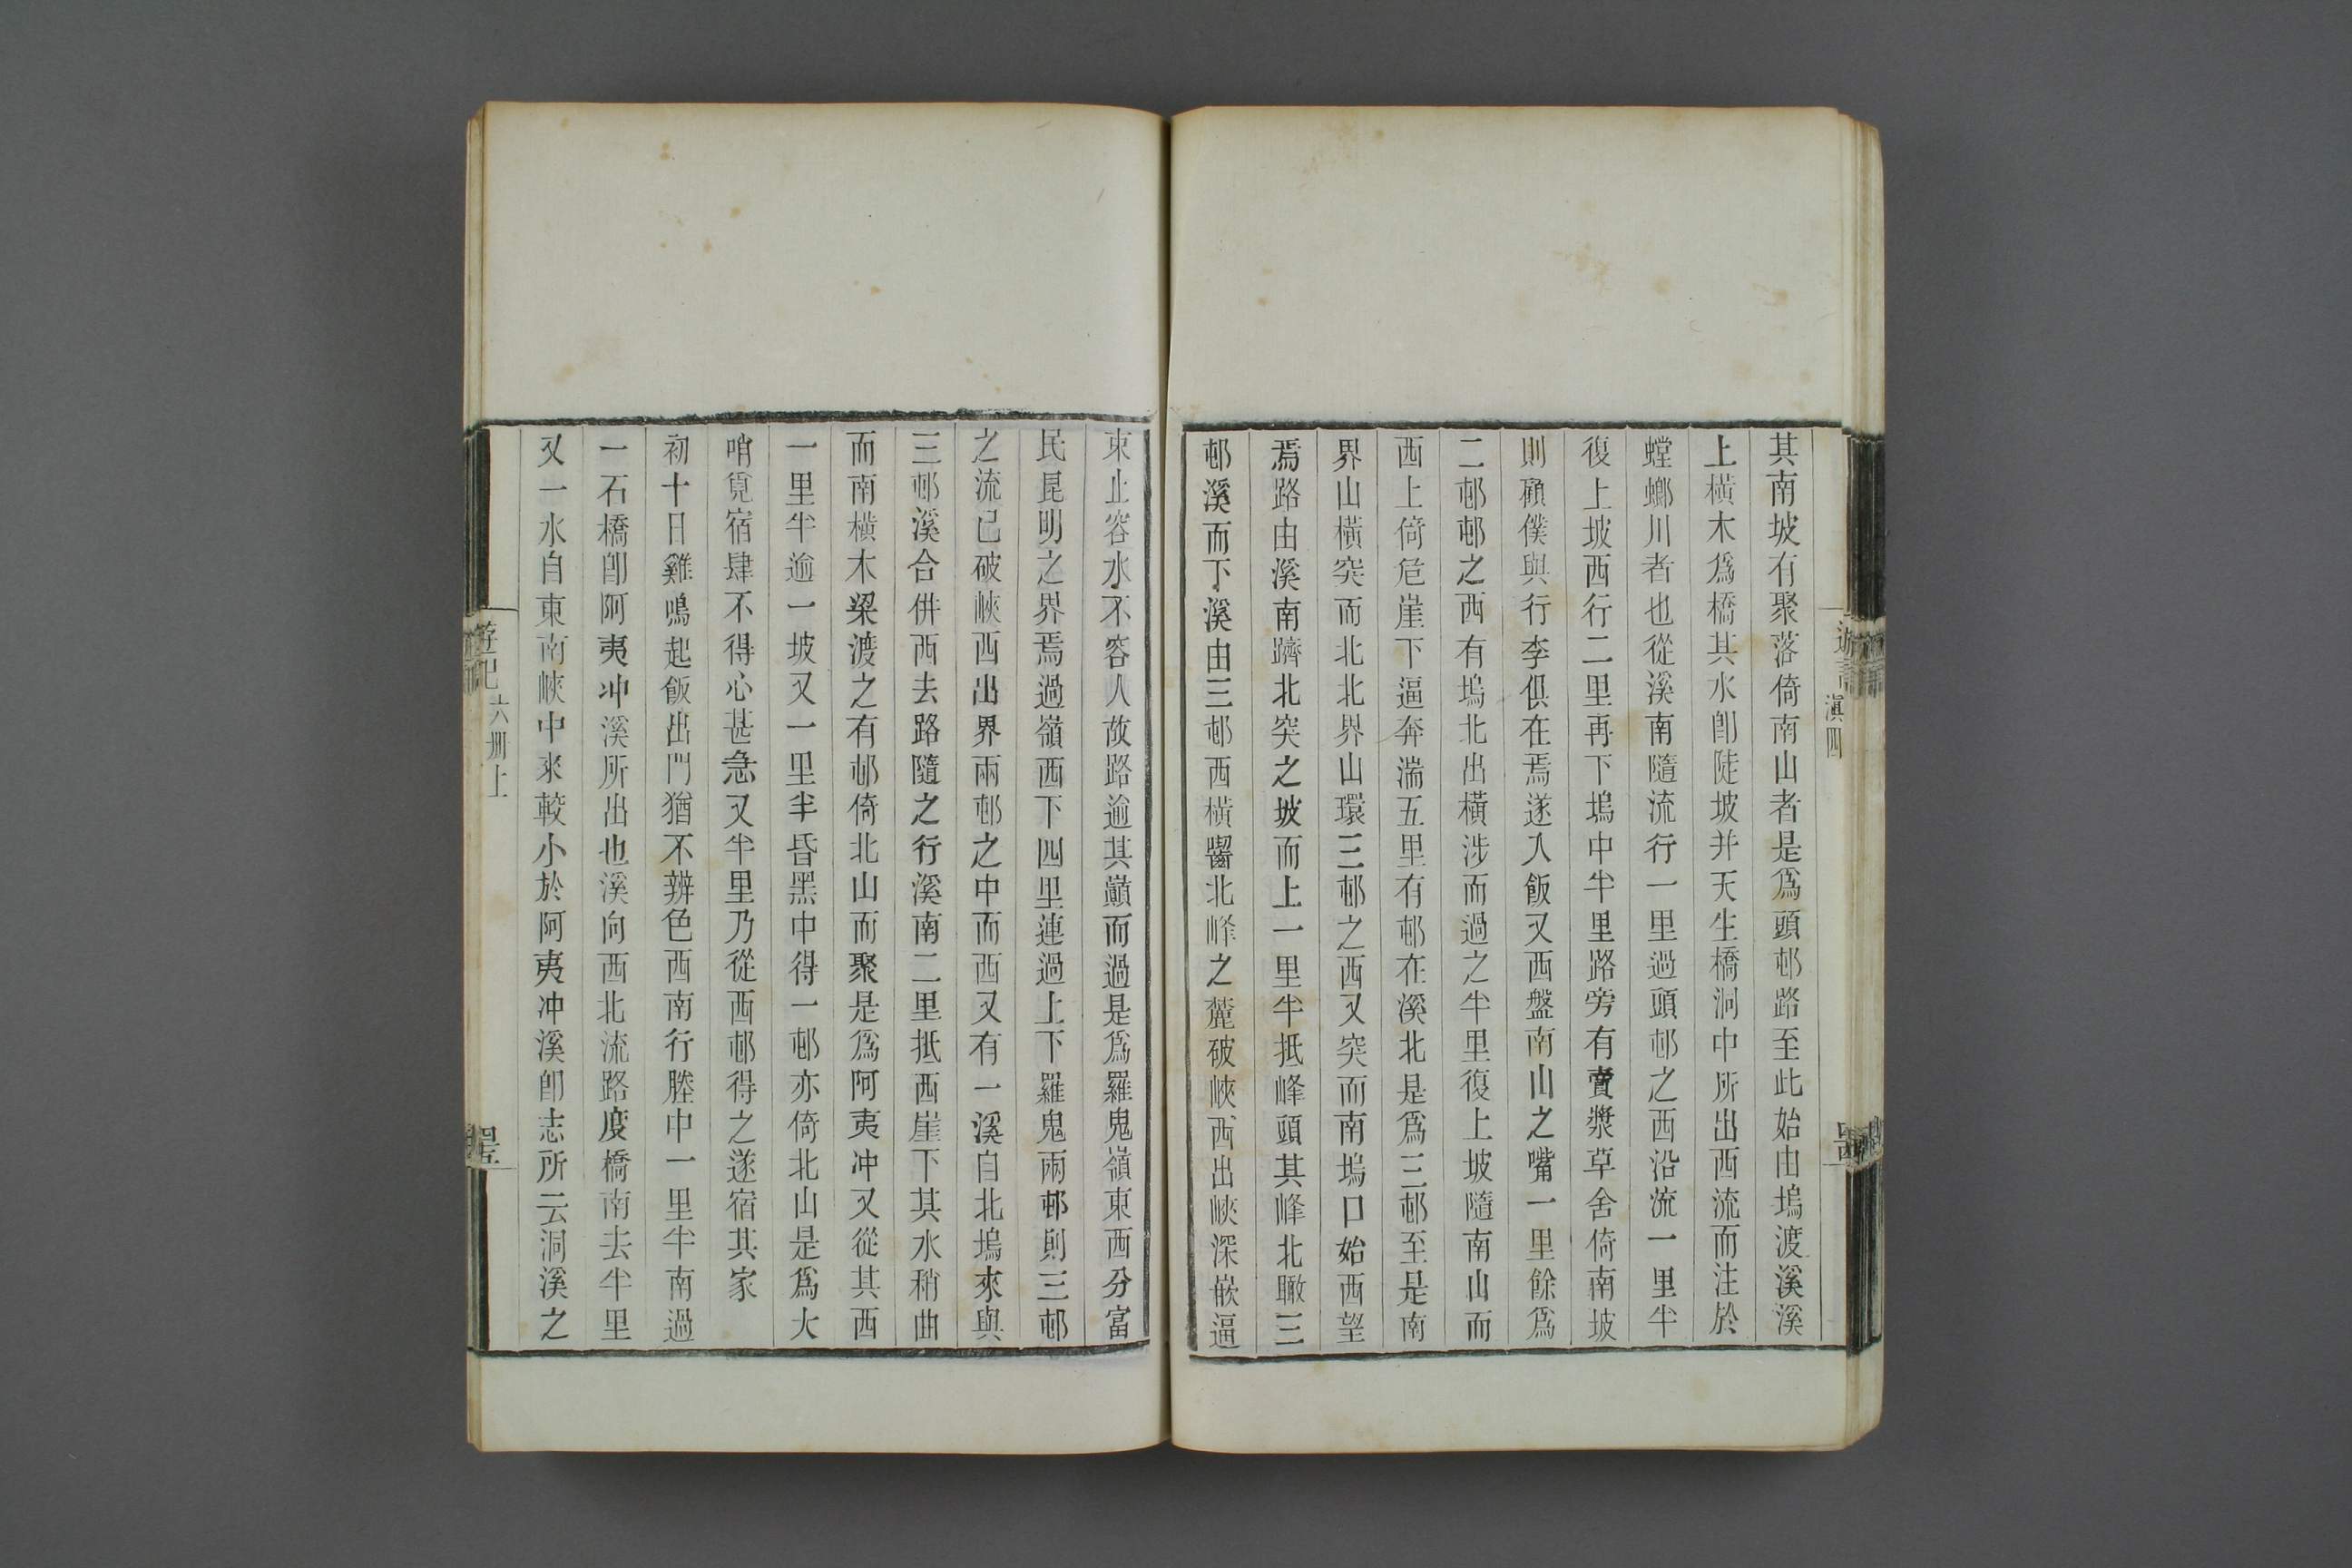 其南坡有聚落倚南山者是爲頭邨路至此始由塢渡溪溪
上橫木爲橋其水卽陡坡并天生橋洞中所出西流而注於
螳螂川者也從溪南隨流行一里過頭邨之西沿流一里半
復上坡西行二里再下塢中半里路旁有賣漿草舍倚南坡
則顧僕與行李俱在焉遂入飯又西盤南山之嘴一里餘爲
二邨邨之西有塢北出橫涉而過之半里復上坡隨南山而
西上倚危崖下逼奔湍五里有邨在溪北是爲三邨至是南
界山橫突而北北界山環三邨之西又突而南塢口始西望
焉路由溪南躋北突之坡而上一里半抵峰頭其峰北瞰三
邨溪而下溪由三邨西橫齧北峰之麓破峽西出峽深嵌逼
束止容水不容人故路逾其巔而過是爲羅鬼嶺東西分富
民昆明之界焉過嶺西下四里連過上下羅鬼兩邨則三邨
之流已破峽西出界兩邨之中而西又有一溪自北塢來與
三邨溪合併西去路隨之行溪南二里抵西崖下其水稍曲
而南橫木梁渡之有邨倚北山而聚是爲阿夷冲又從其西
一里半逾一坡又一里半昏黑中得一邨亦倚北山是爲大
哨覓宿肆不得心甚急又半里乃從西邨得之遂宿其家
初十日雞鳴起飯出門猶不辨色西南行塍中一里半南過
一石橋卽阿夷冲溪所出也溪向西北流路度橋南去半里
又一水自東南峽中來較小於阿夷冲溪卽志所云洞溪之
遊記 滇四
遊記 六册上